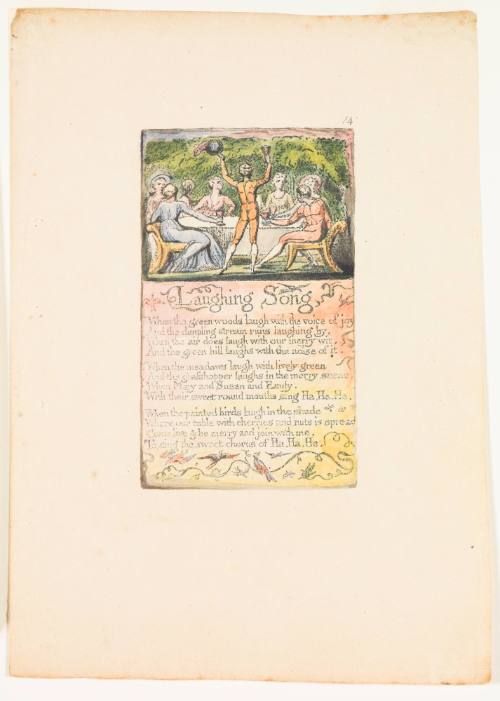 14
Laughing Song,
When the green woods laugh with the voice of joy
And the dimpling stream runs laughing by,
When the air does laugh with our merry wit,
And the green hill laughs with the noise of it.
When the meadows laugh with lively green
And the grasshopper laughs in the merry scene,
When Mary and Susan and Emily,
With their sweet round mouths sing Ha, Ha, He.
When the painted birds laugh in the shade
Where our table with cherries and nuts is spread
Come live & be merry and join with me,
To sing the sweet chorus of Ha, Ha, He.